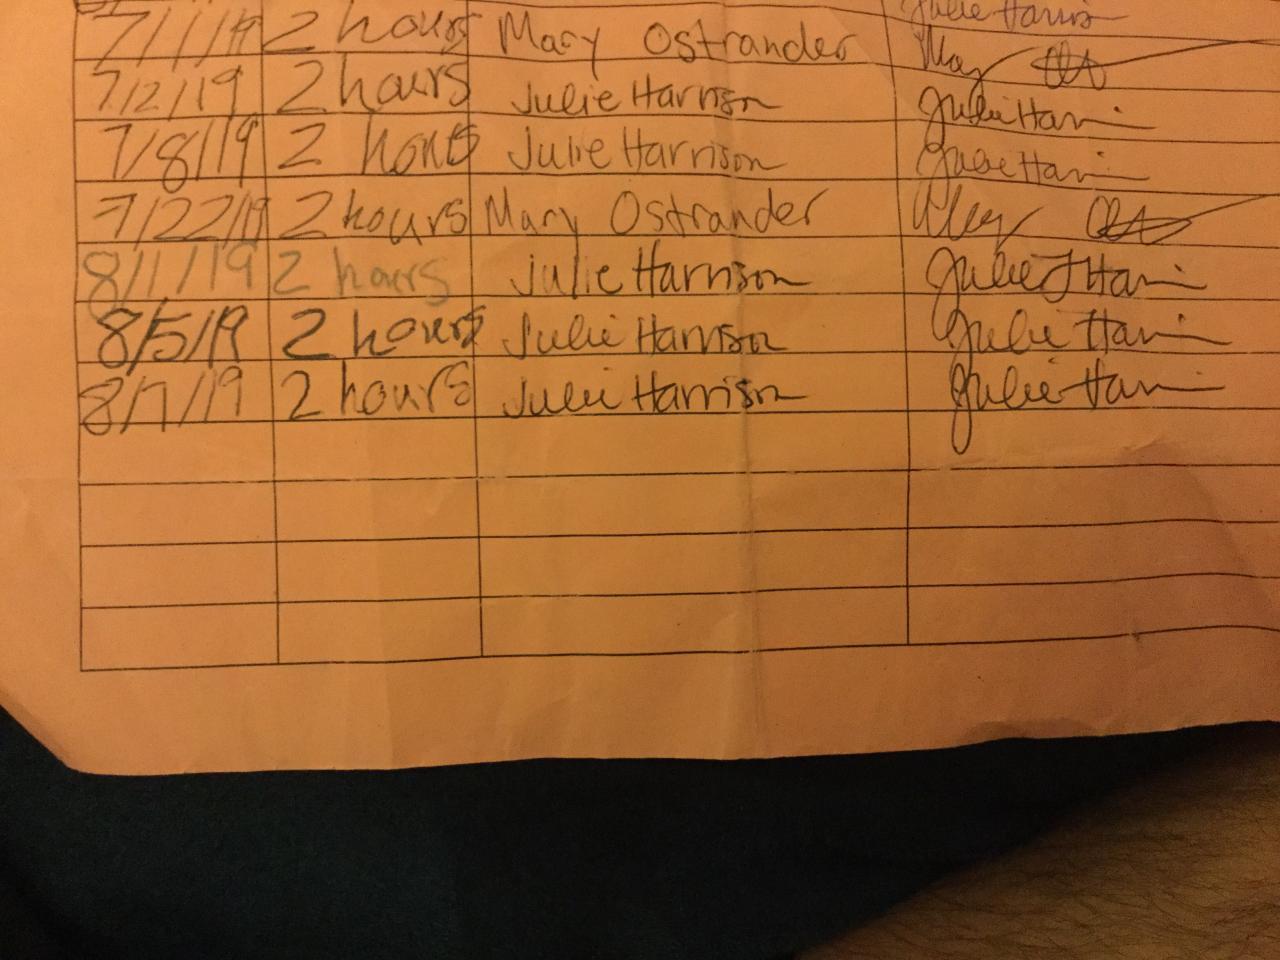 Julie Harris
7/1/19 2 hours Mary Ostrander Mary
7/2/19 2 hours Julie Harrison Julie Harri
7/8/19 2 hours Julie Harrison Julie Harri
7/22/19 2 hours Mary Ostrander Mary
8/1/19 2 hours Julie Harrison Julie J Harri
8/5/19 2 hours Julie Harrison Julie Harri
8/7/19 2 hours Julie Harrison Julie Harri